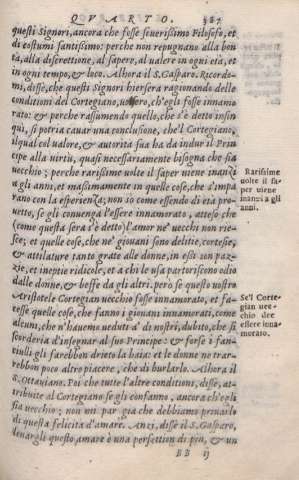 QVARTO. 387
questi Signori, ancora che fosse seuerissimo Filosofo, et
di costumi santissimo: perche non repugnano alla bon
tà, alla discrettione, al sapere, al ualere in ogni età, et
in ogni tempo, & loco. Alhora il S. Gasparo. Ricordo-
mi, disse, che questi Signori hiersera ragionando delle
conditioni del Cortegiano, uolsero, ch'egli fosse innamo
rato: & perche rassumendo quello, che s'è detto insin
qui, si potria cauar una conclusione, che'l Cortegiano,
ilqual col ualore, & autorità sua ha da indur il Prin
cipe alla uirtù, quasi necessariamente bisogna che sia
uecchio; perche rarissime uolte il saper uiene inanzi
a gli anni, et massimamente in quelle cose, che s'impa
rano con la esperienza; non so come essendo di età pro
uetto, se gli conuenga l'essere innamorato, atteso che
(come questa sera s'è detto) l'amor ne' uecchi non rie-
sce; et quelle cose, che ne' giouani sono delitie, cortesie,
& attilature tanto grate alle donne, in essi son paz-
zie, et ineptie ridicole, et a chi le usa partoriscono odio
dalle donne, & beffe da gli altri. però se questo uostro
Aristotele Cortegian uecchio fosse innamorato, et fa-
cesse quelle cose, che fanno i giouani innamorati, come
alcuni, che n'hauemo ueduti a' dì nostri, dubito, che si
scorderia d'insegnar al suo Principe: & forse i fan-
ciulli gli farebbon drieto la baia: et le donne ne trar-
rebbon poco altro piacere, che di burlarlo. Alhora il
S. Ottauiano. Poi che tutte l'altre conditioni, disse, at-
tribuite al Cortegiano se gli confanno, ancora ch'egli
sia uecchio; non mi par già che debbiamo priuarlo
di questa felicità d'amare. Anzi, disse il S. Gasparo,
leuargli questo amare è una perfettion di più, & un
BB ij
Rarissime
uolte il sa-
per uiene
inanzi a gli
anni.
Se'l Corte-
gian uec-
chio dee
essere inna-
morato.